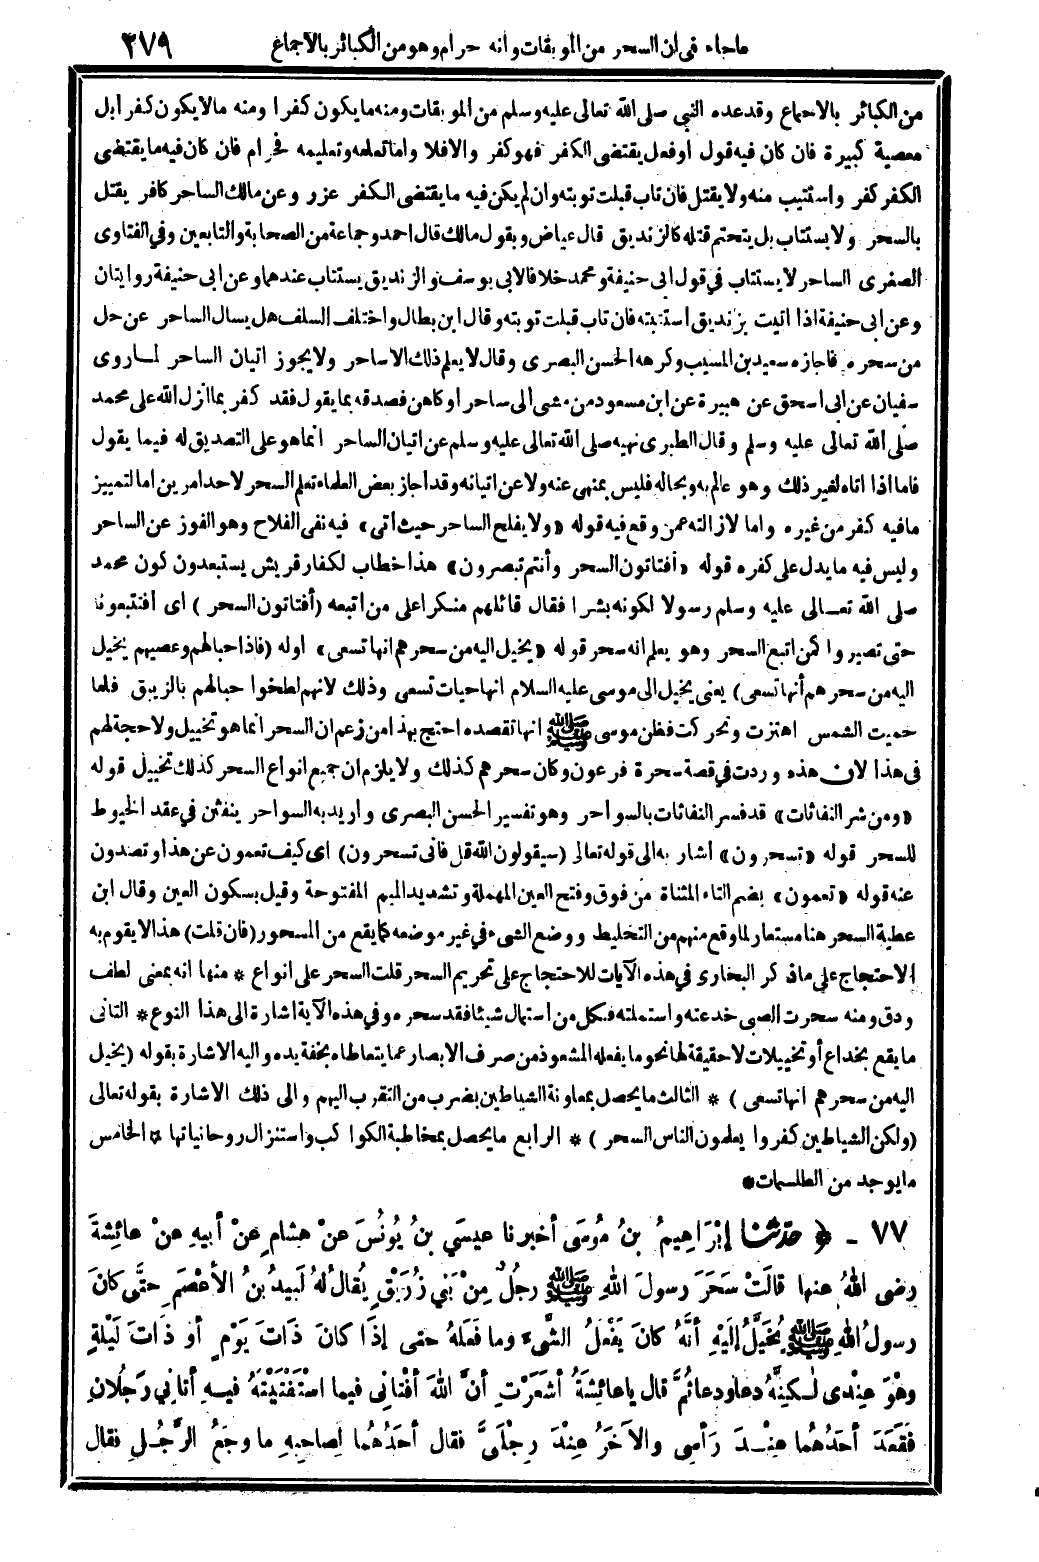 ماجاء في ان السحر من الموبقات وانه حرام وهو من الكبائر بالاجماع ٢٧٩
من الكبائر بالاجماع وقد عده النبي صلى الله تعالى عليه وسلم من الموبقات ومنه ما يكون كفرا ومنه مالا يكون كفرا بل
معصية كبيرة فان كان فيه قول او فعل يقتضى الكفر فهو كفر والا فلا واما تعلمه وتعليمه فحرام فان كان فيه ما يقتضى
الكفر كفر واستتيب منه ولا يقتل فان تاب قبلت توبته وان لم يكن فيه ما يقتضى الكفر عزر وعن مالك الساحر كافر يقتل
بالسحر ولا يستتاب بل يتحتم قتله كالزنديق قال عياض وبقول مالك قال احمد وجماعة من الصحابة والتابعين وفي الفتاوى
الصغرى الساحر لا يستتاب في قول ابى حنيفة ومحمد خلافا لابى يوسف والزنديق يستتاب عندهما وعن ابى حنيفة روايتان
وعن ابى حنيفة اذا اتيت بزنديق استتبته فان تاب قبلت توبته وقال ابن بطال واختلف السلف هل يسال الساحر عن حل
من سحره فاجازه سعيد بن المسيب وكرهه الحسن البصرى وقال لا يعلم ذلك الا ساحر ولا يجوز اتيان الساحر لما روى
سفيان عن ابى اسحق عن هبيرة عن ابن مسعود من مشى الى ساحر او كاهن فصدقه بما يقول فقد كفر بما انزل الله على محمد
صلى الله تعالى عليه وسلم وقال الطبرى نهيه صلى الله تعالى عليه وسلم عن اتيان الساحر انما هو على التصديق له فيما يقول
فاما اذا اتاه لغير ذلك وهو عالم به وبحاله فليس بمنهى عنه ولا عن اتيانه وقد اجاز بعض العلماء تعلم السحر لاحد امرين اما لتمييز
مافيه كفر من غيره واما لازالته عمن وقع فيه قوله «ولا يفلح الساحر حيث اتى» فيه نفى الفلاح وهو الفوز عن الساحر
وليس فيه ما يدل على كفره قوله «أفتاتون السحر وأنتم تبصرون» هذا خطاب لكفار قريش يستبعدون كون محمد
صلى الله تعـالى عليه وسلم رسولا لكونه بشرا فقال قائلهم منكرا على من اتبعه (أفتاتون السحر) اى افتتبعونه
حتى تصيروا كمن اتبع السحر وهو يعلم انه سحر قوله «يخيل اليه من سحرهم انها تسعى» اوله (فاذا حبالهم وعصيهم يخيل
اليه من سحرهم أنها تسعى) يعنى يخيل الى موسى عليه السلام انها حيات تسعى وذلك لانهم لطخوا حبالهم بالزيبق فلما
حميت الشمس اهتزت وتحركت فظن موسى ﷺ انها تقصده احتج بهذا من زعم ان السحر انما هو تخييل ولا حجة لهم
فى هذا لان هذه وردت في قصة سحرة فرعون وكان سحرهم كذلك ولا يلزم ان جميع انواع السحر كذلك تخييل قوله
«ومن شر النفاثات» قد فسر النفاثات بالسواحر وهو تفسير الحسن البصرى واريد به السواحر ينفثن في عقد الخيوط
للسحر قوله «تسحرون» أشار به الى قوله تعالى (سيقولون الله قل فانى تسحرون) اى كيف تعمون عن هذا وتصدون
عنه قوله «تعمون» بضم التاء المثناة من فوق وفتح العين المهملة وتشديد الميم المفتوحة وقيل بسكون العين وقال ابن
عطية السحر هنا مستعار لما وقع منهم من التخليط ووضع الشىء في غير موضعه كما يقع من المسحور (فان قلت) هذا لا يقوم به
الاحتجاج على ما ذكر البخارى في هذه الآيات للاحتجاج على تحريم السحر قلت السحر على انواع * منها انه بمعنى لطف
ودق ومنه سحرت الصبى خدعته واستملته فكل من استمال شيئا فقد سحره وفي هذه الآية اشارة الى هذا النوع * الثانى
ما يقع بخداع أو تخييلات لا حقيقة لها نحو ما يفعله المشعوذ من صرف الابصار عما يتعاطاه بخفة يده واليه الاشارة بقوله (يخيل
اليه من سحرهم انها تسعى) * الثالث ما يحصل بمعاونة الشياطين بضرب من التقرب اليهم والى ذلك الاشارة بقوله تعالى
(ولكن الشياطين كفروا يعلمون الناس السحر) * الرابع ما يحصل بمخاطبة الكواكب واستنزال روحانياتها * الخامس
مايوجد من الطلسمات *
٧٧ - ﴿ حدثنا إبْرَاهِيمُ بنُ مُوسَى أخبرنا عيسَي بنُ يُونُسَ عنْ هشامٍ عنْ أبيهِ عنْ عائِشةَ
رضى اللهُ عنها قالَتْ سَحَرَ رسولَ اللهِ ﷺ رجلٌ مِنْ بَني زُرَيْقٍ يُقالُ لهُ لَبيدُ بنُ الأعْصَمِ حتَّى كانَ
رسولُ اللهِ ﷺ يُخَيَّلُ إلَيْهِ أنَّهُ كانَ يَفْعَلُ الشَّىءَ وما فَعَلهُ حتى إذَا كانَ ذَاتَ يَوْمٍ أو ذَاتَ لَيْلةٍ
وهْوَ عِنْدِى لٰكِنَّهُ دعا ودعا ثُمَّ قال يا عائِشَةُ أشَعَرْتِ أنَّ اللهَ أفْتانِى فيما اسْتَفْتَيْتُهُ فيـهِ أتانِي رَجُلانِ
فقَعَدَ أحَدُهُما عِنْـدَ رَأسِى والآخَرُ عِنْدَ رِجْلَىَّ فقال أحَدُهُما لِصاحِبِهِ ما وجَعُ الرَّجُلِ فقال